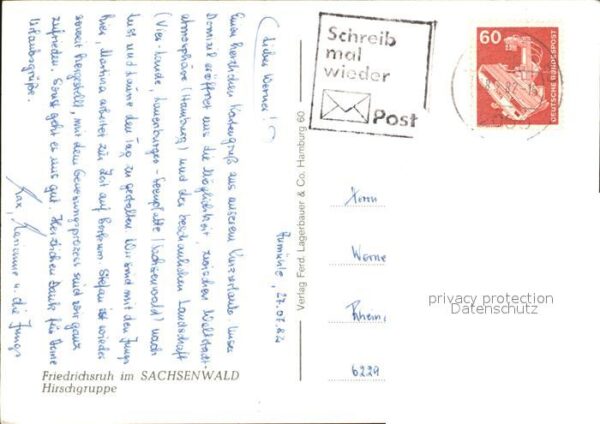 Aumühle, 27.07.82
(Lieber Werner!)
Einen herzlichen Kartengruß aus unserem Kurzurlaub. Unser
Domizil eröffnet uns die Möglichkeit, zwischen Weltstadt-
atmosphäre (Hamburg) und der beschaulichen Landschaft
(Vier-Lande, Lauenburger-Seenplatte, Sachsenwald) nach
Lust und Laune den Tag zu gestalten. Wir sind mit den Jungs
hier, Martina arbeitet zur Zeit auf Borkum. Stefan ist wieder
soweit hergestellt, mit dem Genesungsprozeß sind wir ganz
zufrieden. Sonst geht es uns gut. Herzlichen Dank für Deine
Urlaubsgrüße.
Max, Marianne u. die Jungs
Friedrichsruh im SACHSENWALD
Hirschgruppe
Verlag Ferd. Lagerbauer & Co. Hamburg 60
Schreib
mal
wieder
Post
60
DEUTSCHE BUNDESPOST
Herrn
Werne
Rhein
6229
privacy protection
Datenschutz